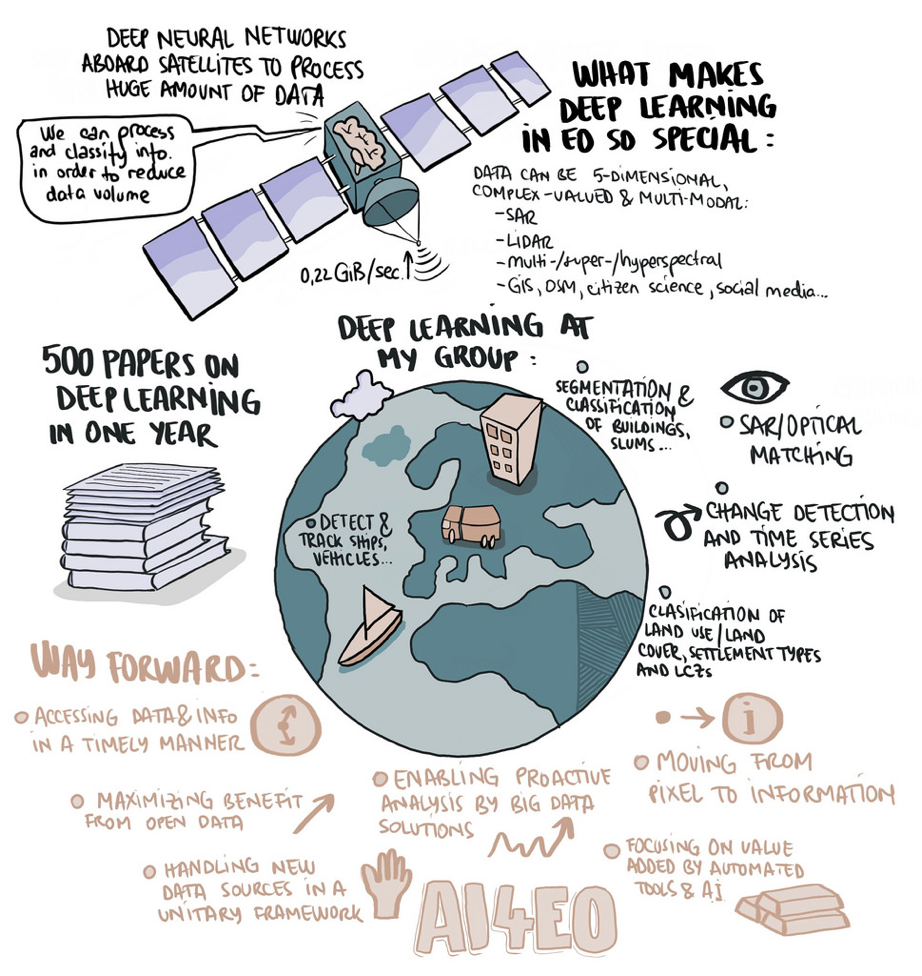 DEEP NEURAL NETWORKS
ABOARD SATELLITES TO PROCESS
HUGE AMOUNT OF DATA
We can process
and classify info.
in order to reduce
data volume
0,22 GiB/sec.
WHAT MAKES
DEEP LEARNING
IN EO SO SPECIAL:
DATA CAN BE 5-DIMENSIONAL,
COMPLEX-VALUED & MULTI-MODAL:
-SAR
-LiDAR
-multi-/super-/hyperspectral
-GIS, DSM, citizen science, social media...
500 PAPERS ON
DEEP LEARNING
IN ONE YEAR
DEEP LEARNING AT
MY GROUP:
SEGMENTATION &
CLASSIFICATION
OF BUILDINGS,
SLUMS...
SAR/OPTICAL
MATCHING
CHANGE DETECTION
AND TIME SERIES
ANALYSIS
DETECT &
TRACK SHIPS,
VEHICLES...
CLASIFICATION OF
LAND USE/LAND
COVER, SETTLEMENT TYPES
AND LCZs
WAY FORWARD:
ACCESSING DATA & INFO
IN A TIMELY MANNER
MAXIMIZING BENEFIT
FROM OPEN DATA
HANDLING NEW
DATA SOURCES IN A
UNITARY FRAMEWORK
ENABLING PROACTIVE
ANALYSIS BY BIG DATA
SOLUTIONS
i
MOVING FROM
PIXEL TO INFORMATION
FOCUSING ON VALUE
ADDED BY AUTOMATED
TOOLS & AI
AI4EO